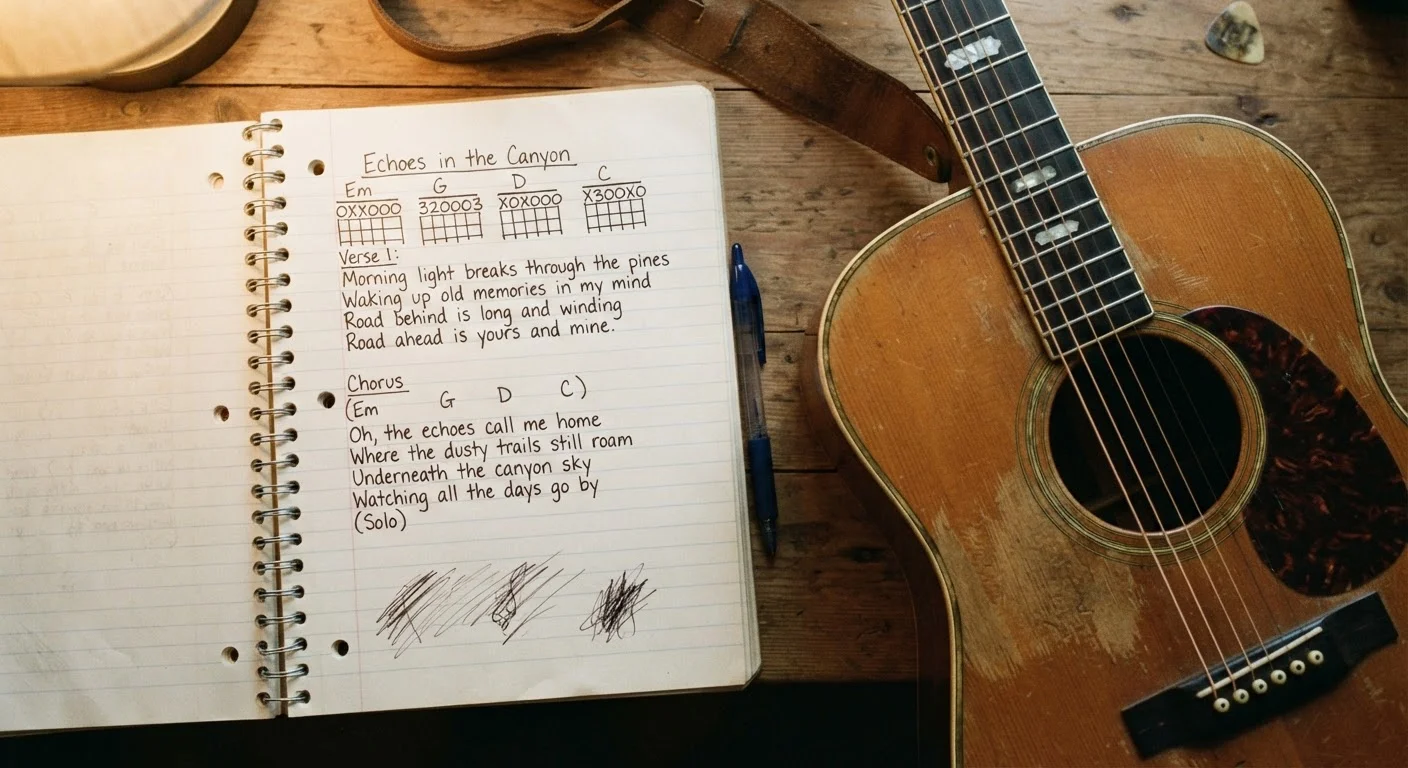 Echoes in the Canyon
Em G D C
OXXOOO 320003 XOXOOO X300X0
Verse 1:
Morning light breaks through the pines
Waking up old memories in my mind
Road behind is long and winding
Road ahead is yours and mine.
Chorus
(Em G D C)
Oh, the echoes call me home
Where the dusty trails still roam
Underneath the canyon sky
Watching all the days go by
(Solo)